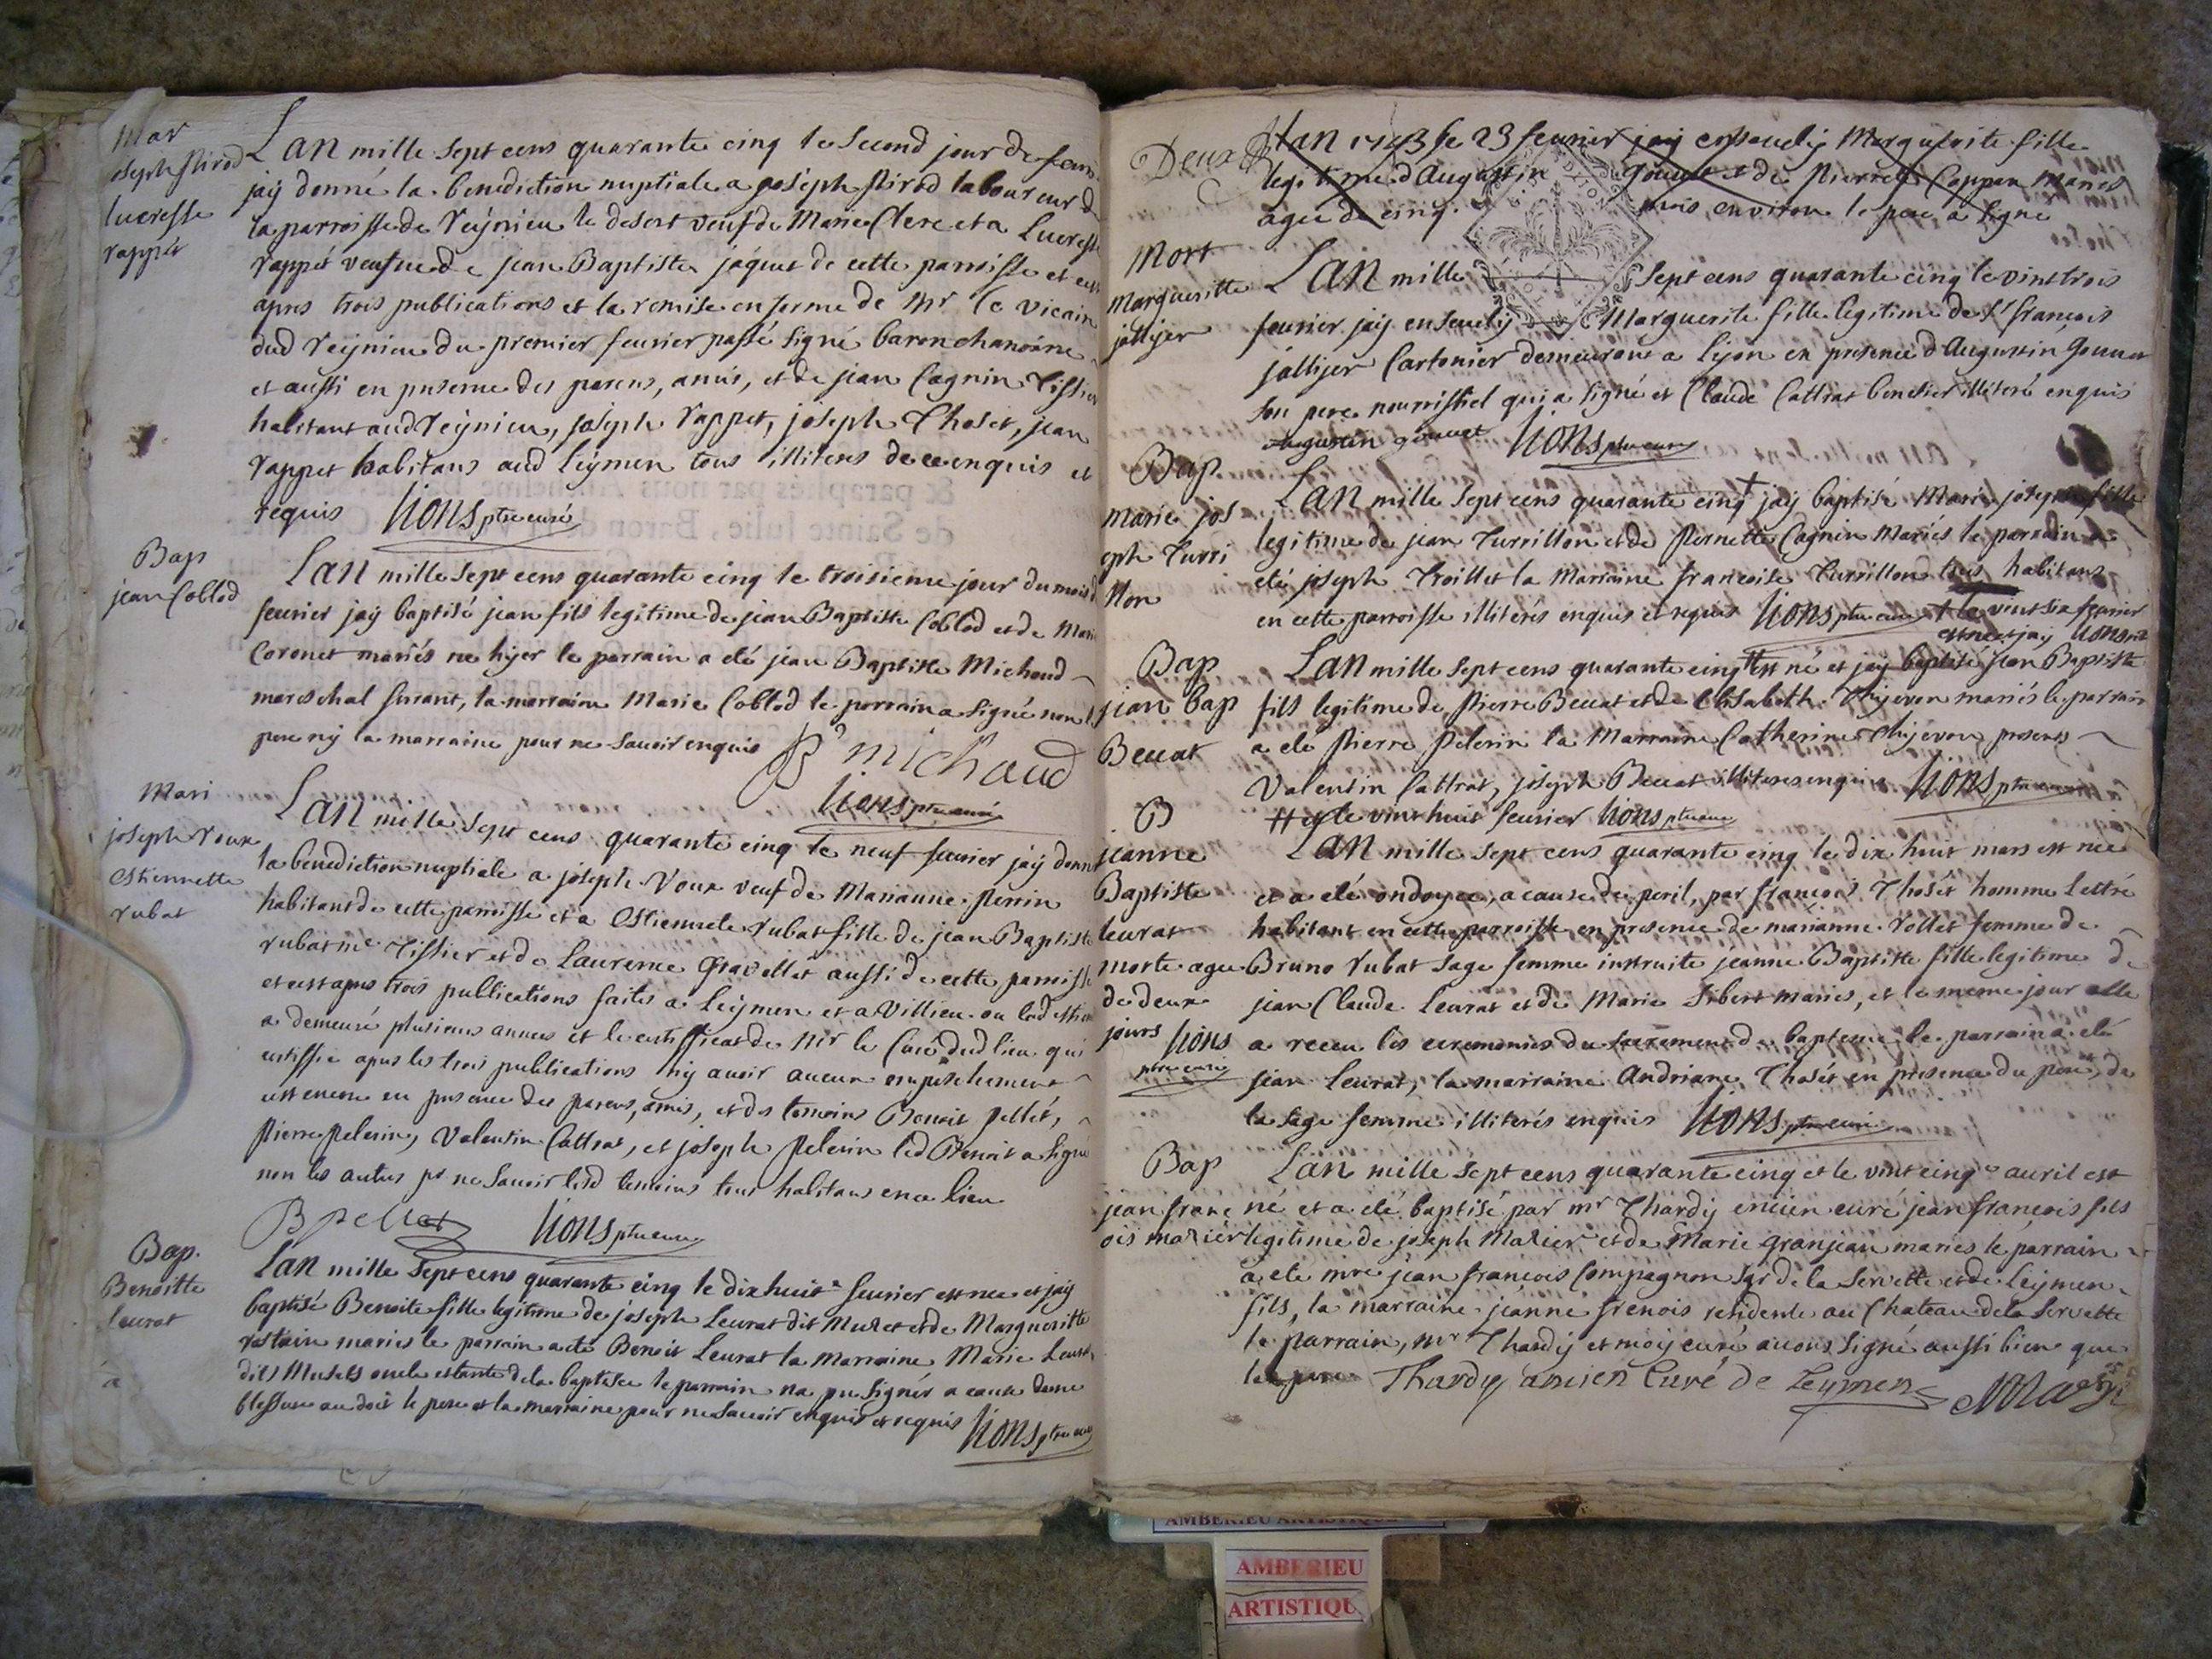 Mar
oseph Pirod
lucresse
rappét
Lan mille sept cens quarante cinq le second jour de feurie
jaÿ donné la benediction nuptiale a joséph Pirod laboureur de
la parroisse de reÿnieu le desert veuf de Marie Clerc et a Lucresse
rappét veufue de jean Baptiste jáquet de cette parroisse et cest
apres trois publications et la remise en forme de Mr le vicaire
dud reÿnieu du premier feurier passé signé baron chanoine
et aussi en presence des parens, amis, et de jean Cagnin Tissier
habitant aud reÿnieu, joseph rappet, joseph Thoset, jean
rappet habitans aud leÿmen tous illiteres de ce enquis et
requis Lions ptre curé
Bap
jean Coblod
Lan mille sept cens quarante cinq le troisieme jour du mois de
feurier jaÿ baptisé jean fils legitime de jean Baptiste Coblod et de Marie
Coronet mariés ne hÿer le parrain a eté jean Baptiste Michaud
mareschal ferant, la marraine Marie Coblod le parrain a signé non le
pere nÿ la marraine pour ne savoir enquis B michaud
Lions ptre curé
Mari
joseph roux
estiennette
rubat
Lan mille sept cens quarante cinq le neuf feurier jaÿ donné
la benediction nuptiale a joseph roux veuf de Marianne Perrin
habitant de cette parroisse et a Estiennete rubat fille de jean Baptiste
rubat me Tissier et de Laurence Gravellet aussi de cette parroisse
et cest apres trois publications faites a Leÿmen et a Villieu ou lad estien
a demeuré plusieurs années et le certifficat de Mr le Curé dud lieu qui
certiffie apres les trois publications nÿ avoir aucun empeschement
cest encore en presence des parens, amis, et des temoins Benoit pellét,
pierre pelerin, Valentin Cattrat, et joseph pelerin led Benoit a signé
non les autres pr ne savoir lesd temoins tous habitans en ce lieu
B pellet Lions ptre curé
Bap.
Benoitte
leurat
Lan mille sept cens quarante cinq le dix huit e feurier est nee et jaÿ
baptisé Benoite fille legitime de joseph Leurat dit Muzet et de Margueritte
rostain mariés le parrain a eté Benoit Leurat la marraine Marie Leurat
dits Musets oncle et tante de la baptisée le parrain na pu signér a cause dune
blessure au doit le pere et la marraine pour ne savoir enquis et requis Lions ptre curé
Deux
Lan 1743 le 23 feurier jaÿ enseuelÿ Marguerite fille
legitime d Augustin gouuet et de Pierrette Cappan mariés
agée de cinq mois environ le pere a signé
Mort
Margueritte
jallÿer
Lan mille sept cens quarante cinq le vint trois
feurier jaÿ enseuelÿ Marguerite fille legitime de Sr françois
jallÿer Cartonier demeurant a Lÿon en presence d Augustin Gouuet
son pere nourrissiel qui a signé et Claude Cattrat benestier illiteré enquis
Augustin gouuet Lions ptre curé
Bap
Marie jos
eph Turri
llon
Lan mille sept cens quarante cinq + jaÿ baptisé Marie joseph fille
legitime de jean Turrillon et de Pernette Cagnin Mariés le parrain a
eté joseph Troillet la Marraine francoise Turrillon tous habitans
en cette parroisse illiterés enquis et requis Lions ptre curé + le vint six feurier
est nee et jaÿ Lions
Bap
jean bap
Beccat
Lan mille sept cens quarante cinq # est né et jaÿ baptisé jean Baptiste
fils legitime de Pierre Beccat et de Elisabeth Thÿevon mariés le parrain
a eté Pierre Pelerin la Marraine Catherine Thÿevon presens
Valentin Cattrat, joseph Beccat illiteres enquis Lions ptre curé
# le vint huit feurier Lions ptre curé
B
jeanne
Baptiste
leurat
morte agee
de deux
jours Lions
ptre curé
Lan mille sept cens quarante cinq le dix huit mars est née
et a eté ondoyée, a cause du peril, par françois Thosét homme lettré
habitant en cette parroisse en presence de marianne rollét femme de
Bruno rubat sage femme instruite jeanne Baptiste fille legitime de
jean Claude Leurat et de Marie Sibert mariés, et le meme jour elle
a receu les ceremonies du sacrement de bapteme le parrain a eté
jean Leurat, la marraine Andriane Thosét en presence du pere, de
la sage femme illiterés enquis Lions ptre curé
Bap
jean franc
ois mazier
Lan mille sept cens quarante cinq et le vint cinq e auril est
né et a eté baptisé par mr Thardÿ encien curé jean françois fils
legitime de joseph Mazier et de Marie granjean mariés le parrain
a eté mre jean françois Compagnon sgr de la Servette et de Leÿmen
fils, la marraine jeanne frenois residente au Chateau de la Servette
le parrain, mr Thardÿ et moÿ curé auons signé aussi bien que
le pere Thardy ancien Curé de Leymen Mazier
AMBERIEU ARTISTIQUE
AMBERIEU
ARTISTIQU